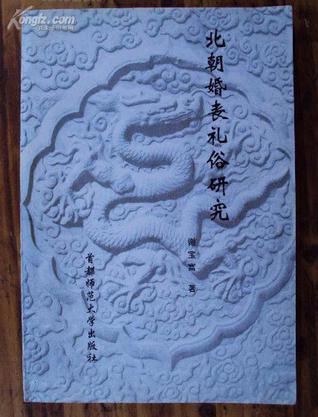 北朝婚丧礼俗研究
谢宝富 著
首都师范大学出版社